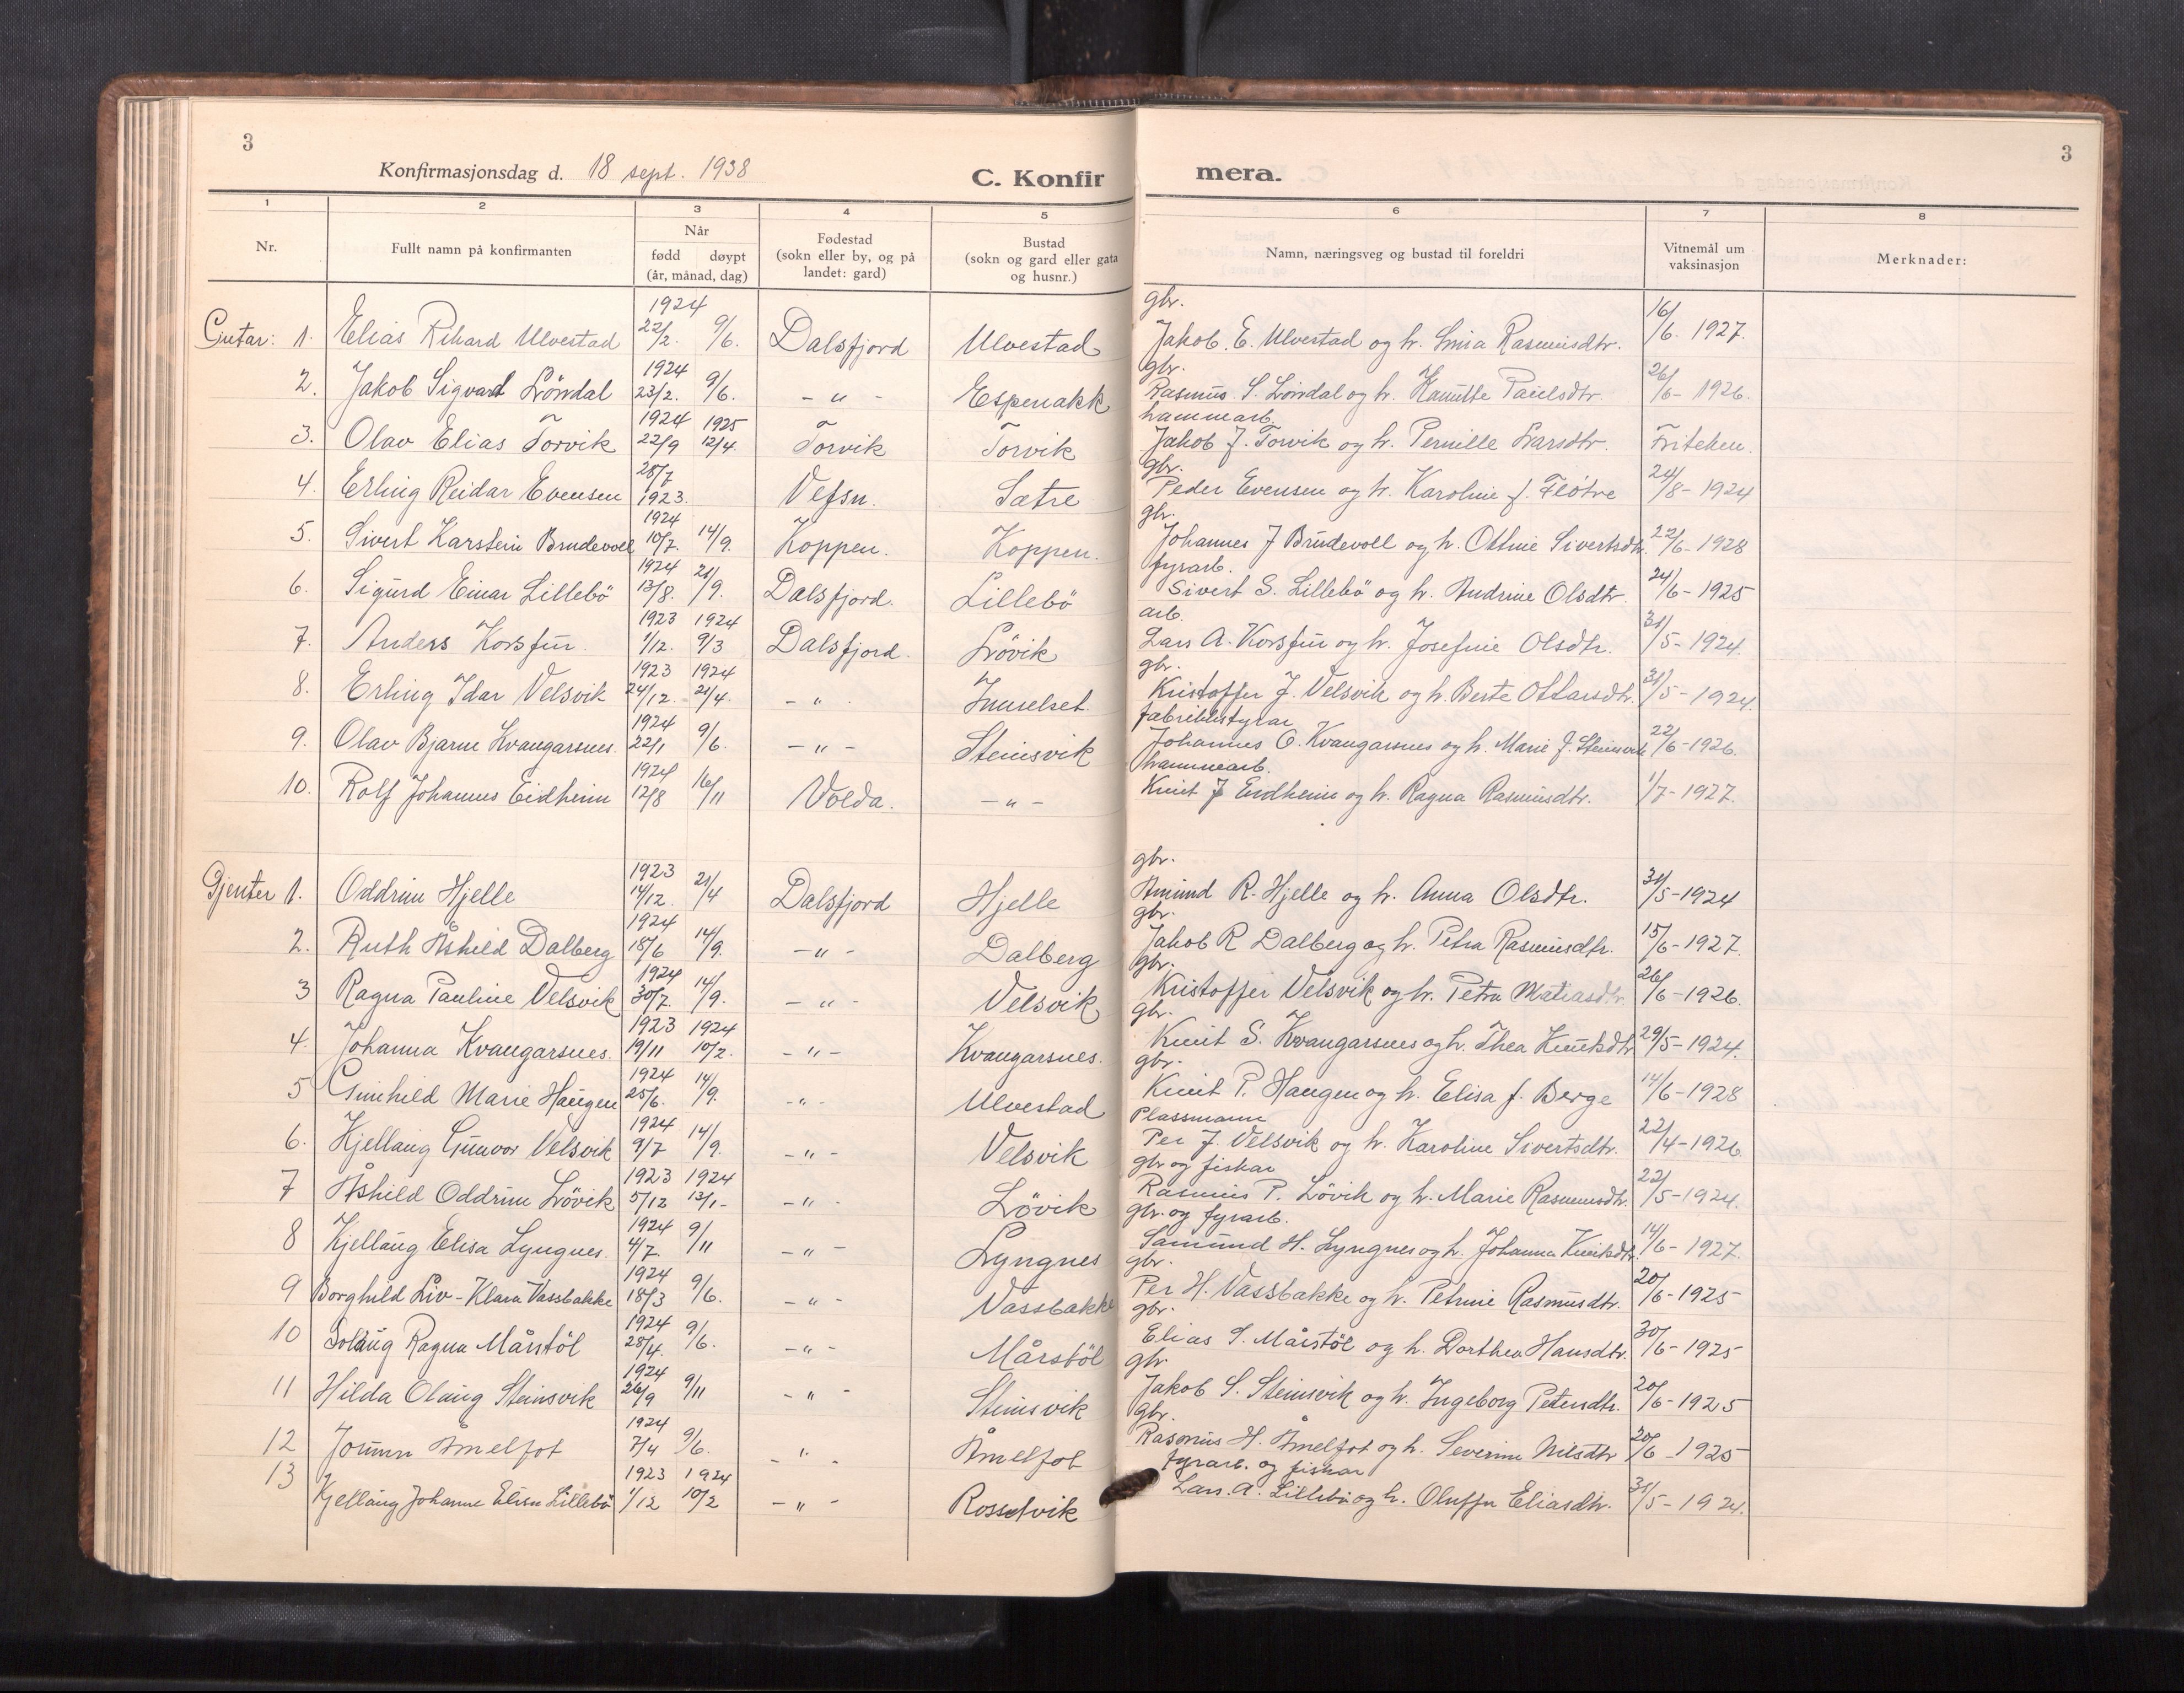 3
3
Konfirmasjonsdag d. 18 sept. 1938
C. Konfirmera.
1 2 3 4 5 6 7 8
Nr.
Fullt namn på konfirmanten
Når
fødd døypt
(år, månad, dag)
Fødestad
(sokn eller by, og på
landet: gard)
Bustad
(sokn og gard eller gata
og husnr.)
Namn, næringsveg og bustad til foreldri
Vitnemål um
vaksinasjon
Merknader:
1924 gbr.
Gutar: 1. Elias Rikard Ulvestad 22/2. 9/6. Dalsfjord Ulvestad Jakob. E. Ulvestad og h. Rasmusdtr. 16/6. 1927.
1924 gbr.
2. Jakob Sigvard Löndal 23/2. 9/6. - " - Espenakk Rasmus S. Löndal og h. Paulsdtr. 26/6 - 1926.
1924 1925 hammarb.
3. Olav Elias Torvik 22/9 12/4. Torvik Torvik Jakob J. Torvik og h. Pernille Larsdtr. Friteken.
gbr.
4. Erling Reidar Evensen 28/7 1923. Vefsn. Sætre Peder Evensen og h. Karoline f. Fløtre 24/8 - 1924
1924 gbr.
5. Sivert Karstein Brudevoll 10/7. 14/9. Koppen. Koppen. Johannes J Brudevoll og h. Otline Sivertsdtr. 22/6 - 1928
1924 fyrarb.
6. Sigurd Einar Lillebö 13/8. 21/9. Dalsfjord. Lillebö Sivert S. Lillebö og h. Andrine Olsdtr. 24/6 - 1925
1923 1924 arb.
7. Anders Korsfur. 1/12. 9/3 Dalsfjord. Lövik Lars A. Korsfur og h. Josefine Olsdtr. 31/5 - 1924.
1923 1924 gbr.
8. Erling Idar Velsvik 24/12. 21/4. - " - Innselset Kristoffer J. Velsvik og h. Berte Ottarsdtr. 31/5 - 1924.
1924 fabrikkstyrar
9. Olav Bjarne Kvangarsnes. 22/1 9/6. - " - Steinsvik Johannes O. Kvangarsnes og h. Marie J. Steinsvik 22/6 - 1926.
1924 hammarb.
10. Rolf Johannes Eidheim 12/8 16/11 Volda. - " - Knut J Eidheim og h. Ragna Rasmusdtr. 1/7 - 1927.
1923 gbr.
Gjenter 1. Oddrun Hjelle 14/12. 21/4 Dalsfjord Hjelle Amund R. Hjelle og h. Anna Olsdtr. 31/5 - 1924
1924 gbr.
2. Ruth Åshild Dalberg 18/6 14/9. - " - Dalberg Jakob R Dalberg og h. Petra Rasmusdtr. 15/6 - 1927.
1924 gbr.
3 Ragna Pauline Velsvik 30/7. 14/9. - " - Velsvik Kristoffer Velsvik og h. Petra Matiasdtr. 26/6 - 1926.
1923 1924 gbr.
4. Johanna Kvangarsnes. 19/11 10/2. - " - Kvangarsnes. Knut S. Kvangarsnes og h. Thea Knutsdtr 29/5 - 1924.
1924 gbr.
5 Gunhild Marie Haugen 25/6. 14/9. - " - Ulvestad Knut P. Haugen og h. Elisa f. Berge 14/6 - 1928
1924 Plassmann
6. Kjellaug Gunvor Velsvik 9/7 14/9. - " - Velsvik Per J. Velsvik og h. Karoline Sivertsdtr. 22/4 - 1926
1923 1924 gbr og fiskar
7 Åshild Oddrun Lövik 5/12 13/1- - " - Lövik Rasmus P. Lövik og h. Marie Rasmusdtr. 22/5 - 1924.
1924 gbr. og fyrarb.
8 Kjellaug Elisa Lyngnes. 4/7. 9/11 - " - Lyngnes Samund H. Lyngnes og h. Johanna Knutsdtr. 14/6 - 1927.
1924 gbr.
9 Borghild Liv - Klara Vassbakke 18/3 9/6. - " - Vassbakke Per H. Vassbakke og h. Petrine Rasmusdtr. 20/6 - 1925
1924 gbr.
10 Solaug Ragna Mårstöl 28/4. 9/6. - " - Mårstöl Elias S. Mårstöl og h. Dorthea Hansdtr. 30/6 - 1925
1924 gbr.
11 Hilda Olaug Steinsvik 26/9 9/11 - " - Steinsvik Jakob S. Steinsvik og h. Ingeborg Petersdtr. 20/6 - 1925
1924 gbr.
12 Jorunn Åmelfot 7/4 9/6. - " - Åmelfot Rasmus H. Åmelfot og h. Severine Nilsdtr 20/6 - 1925
1923 1924 fyrarb. og fiskar
13 Kjellaug Johanne Elisa Lillebö 1/12 10/2 - " - Rossetvik Lars. A. Lillebö og h. Oluffa Eliasdtr. 31/5 - 1924.